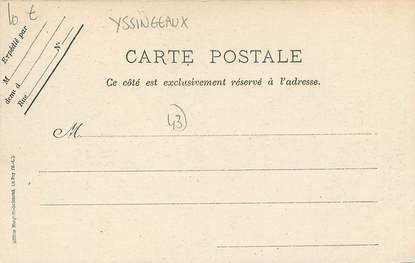 10 €
YSSINGEAUX
Expédié par
M
demt à
Rue N°
CARTE POSTALE
Ce côté est exclusivement réservé à l'adresse.
43
M